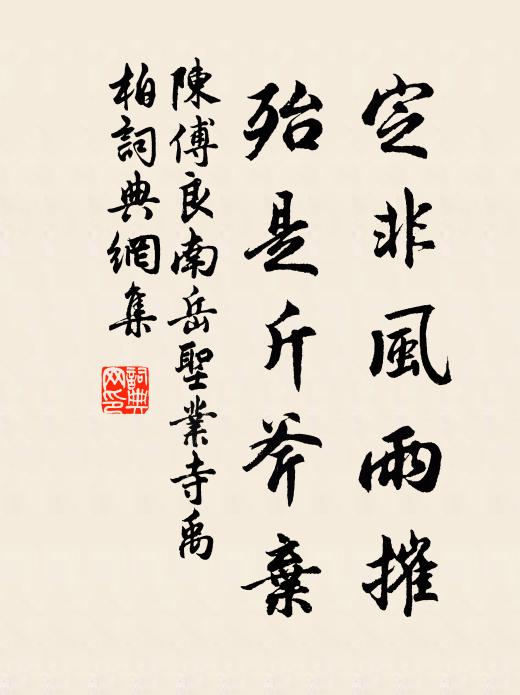 定非風雨摧
殆是斤斧棄
陳傅良南岳聖業寺禹
柏詞典網集
詞典
网印